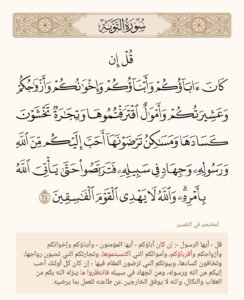 سُورَةُ التَّوْبَةِ
قُلْ إِن
كَانَ ءَابَآؤُكُمْ وَأَبْنَآؤُكُمْ وَإِخْوَٰنُكُمْ وَأَزْوَٰجُكُمْ
وَعَشِيرَتُكُمْ وَأَمْوَٰلٌ ٱقْتَرَفْتُمُوهَا وَتِجَٰرَةٌ تَخْشَوْنَ
كَسَادَهَا وَمَسَٰكِنُ تَرْضَوْنَهَآ أَحَبَّ إِلَيْكُم مِّنَ ٱللَّهِ
وَرَسُولِهِۦ وَجِهَادٍ فِي سَبِيلِهِۦ فَتَرَبَّصُوا۟ حَتَّىٰ يَأْتِيَ ٱللَّهُ
بِأَمْرِهِۦ ۗ وَٱللَّهُ لَا يَهْدِي ٱلْقَوْمَ ٱلْفَٰسِقِينَ ٢٤
المختصر في التفسير
قل - أيها الرسول -: إن كان آباؤكم - أيها المؤمنون - وأبناؤكم وإخوانكم
وأزواجكم وأقرباؤكم، وأموالكم التي اكتسبتموها، وتجارتكم التي تحبون رواجها،
وتخافون كسادها، وبيوتكم التي ترضون المقام فيها - إن كان كل أولئك أحب
إليكم من الله ورسوله، ومن الجهاد في سبيله فانتظروا ما ينزله الله بكم من
العقاب والنكال، والله لا يوفق الخارجين عن طاعته للعمل بما يرضيه.